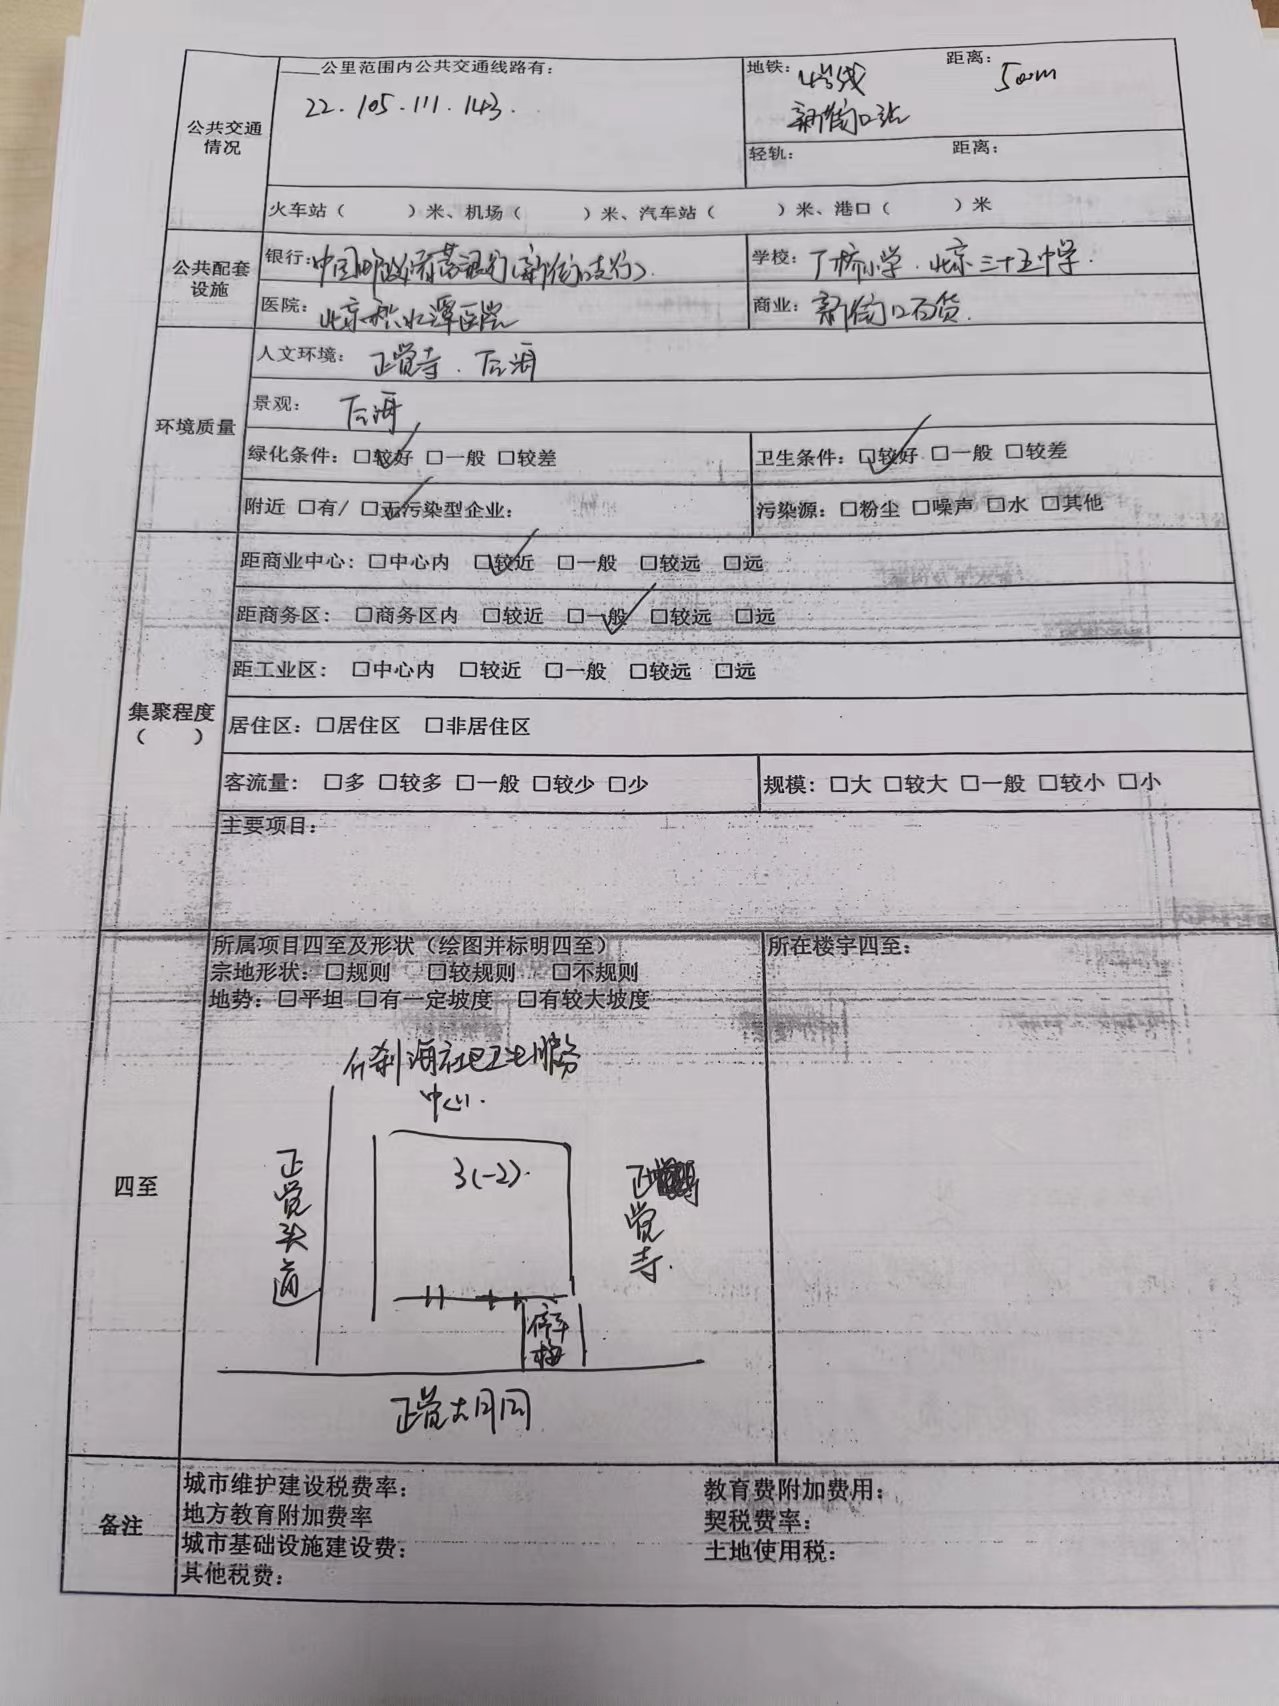 ____公里范围内公共交通线路有：
22. 105. 111. 143.
地铁：4号线 距离：500m
新街口站
公共交通情况
轻轨： 距离：
火车站（ ）米、机场（ ）米、汽车站（ ）米、港口（ ）米
公共配套设施
银行：中国邮政储蓄银行（新街口支行）. 学校： 厂桥小学. 北京三十五中学.
医院：北京积水潭医院 商业：新街口百货.
环境质量
人文环境：正觉寺. 后海
景观：后海
绿化条件：☑较好 □一般 □较差 卫生条件：☑较好 □一般 □较差
附近 □有/ ☑无污染型企业： 污染源：□粉尘 □噪声 □水 □其他
集聚程度
（ ）
距商业中心：□中心内 ☑较近 □一般 □较远 □远
距商务区：□商务区内 □较近 ☑一般 □较远 □远
距工业区：□中心内 □较近 □一般 □较远 □远
居住区：□居住区 □非居住区
客流量：□多 □较多 □一般 □较少 □少 规模：□大 □较大 □一般 □较小 □小
主要项目：
四至
所属项目四至及形状（绘图并标明四至） 所在楼宇四至：
宗地形状：□规则 □较规则 □不规则
地势：□平坦 □有一定坡度 □有较大坡度
什刹海社区卫生服务
中心.
3(-2).
正觉头道
正觉寺.
停车
正觉大胡同
备注
城市维护建设税费率： 教育费附加费用：
地方教育附加费率 契税费率：
城市基础设施建设费： 土地使用税：
其他税费：